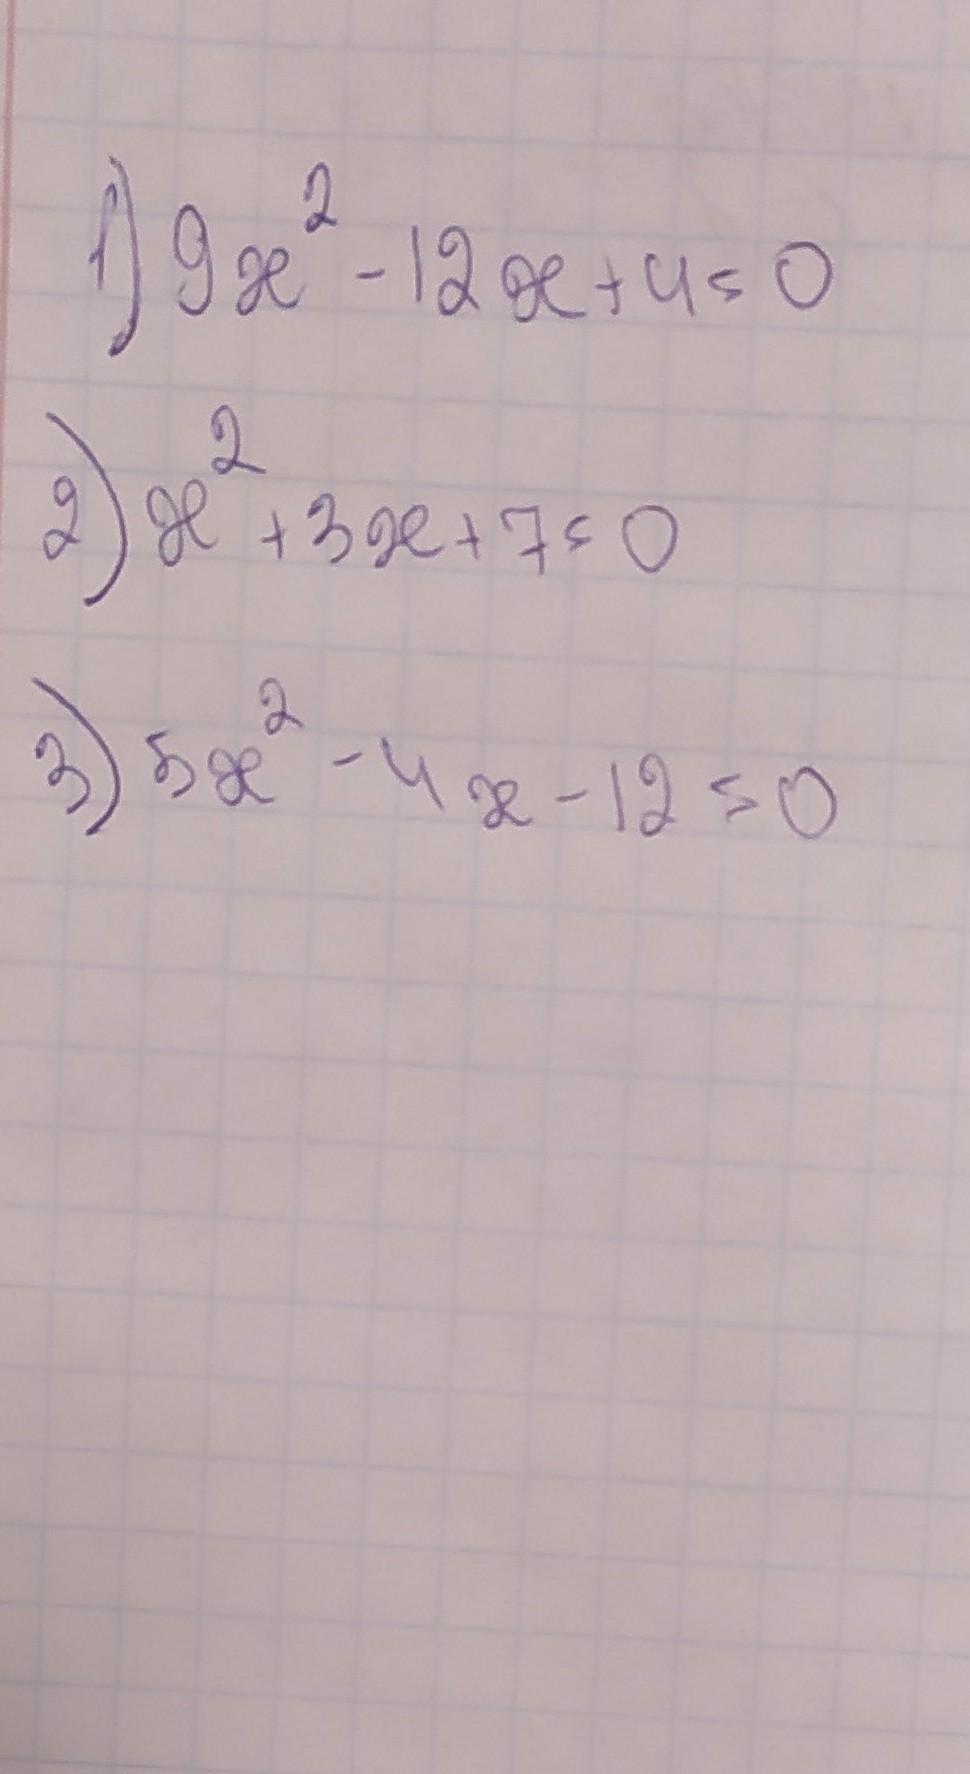 1) 9x² - 12x + 4 = 0
2) x² + 3x + 7 = 0
3) 5x² - 4x - 12 = 0